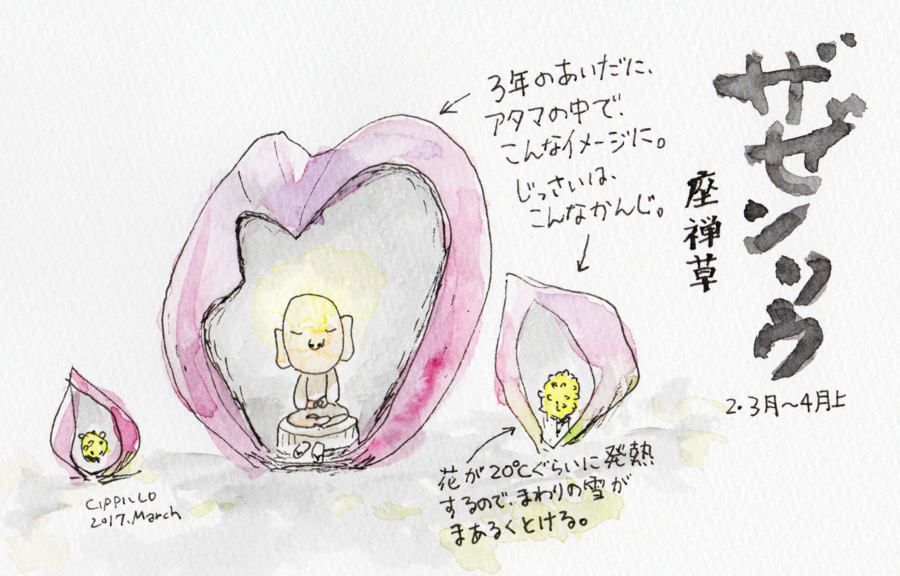 ザゼンソウ
座禅草
2.3月～4月上
3年のあいだに、
アタマの中で、
こんなイメージに。
じっさいは、
こんなかんじ。
花が20℃ぐらいに発熱
するので、まわりの雪が
まあるくとける。
CIPPILLO
2017.March